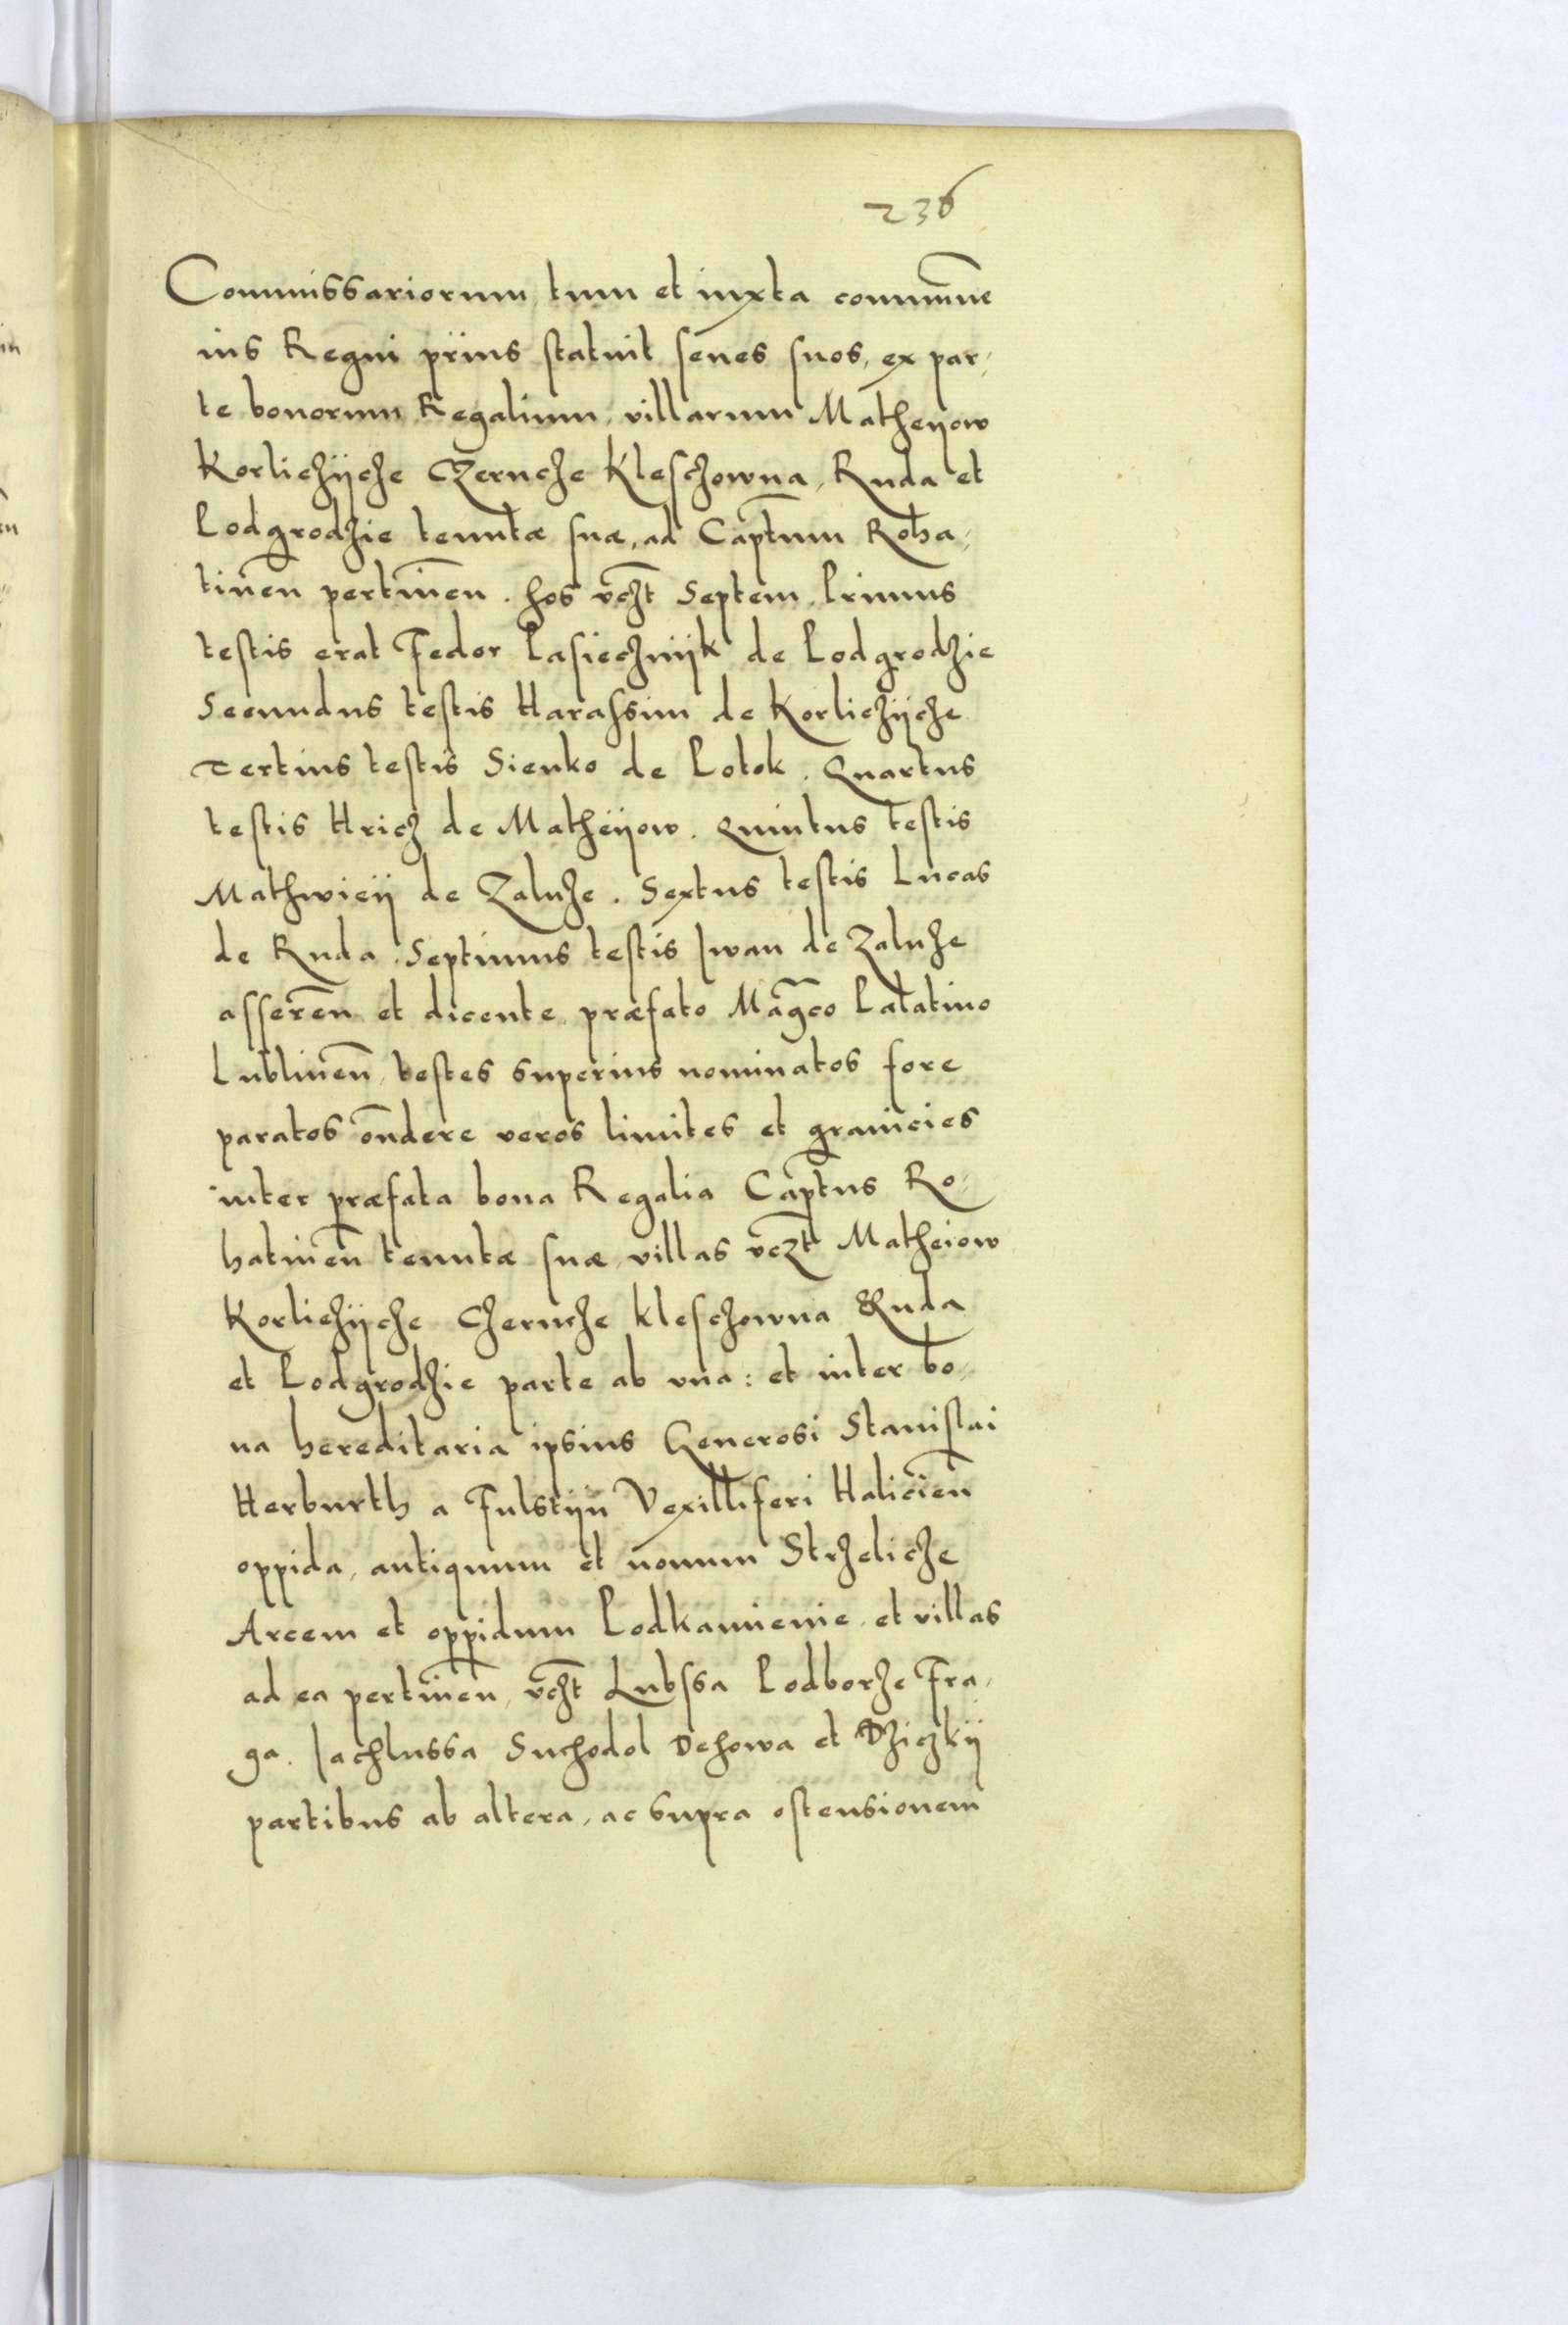 236
Commissariorum, tum et iuxta com̄une
ius Regni prius statuit senes suos, ex par-
te bonorum Regalium, villarum Matheijow
Korliczijcze Czerncze Kleschowna, Ruda et
Podgrodzie tenutæ suæ, ad Capt̄um Roha-
tinen̄ pertinen̄. hos vcz̄t Septem. Primus
testis erat Fedor Pasiecznijk de Podgrodzie
Secundus testis Harassim de Korliczijcze
Tertius testis Sienko de Potok. Quartus
testis Hricz de Matheijow. Quintus testis
Mathwieij de Zaluze. Sextus testis Lucas
de Ruda. Septimus testis Iwan de Zaluze
asseren̄ et dicente præfato Maḡco Palatino
Lublinen̄, testes superius nominatos fore
paratos on̄dere veros limites et granicies
inter præfata bona Regalia Capt̄us Ro-
hatinen̄ tenutæ suæ, villas vcz̄t Matheiow
Korliczijcze Czerncze Kleschowna Ruda
et Podgrodzie parte ab vna: et inter bo-
na hereditaria ipsius Generosi Stanislai
Herburth a Fulstijn Vexilliferi Halicien̄
oppida, antiquum et nouum Strzelicze
Arcem et oppidum Podkamienie, et villas
ad ea pertinen̄, vcz̄t Lubssa Podborze Fra-
ga. Iachlussa Suchodol Dehowa et Dziczkij
partibus ab altera, ac supra ostensionem